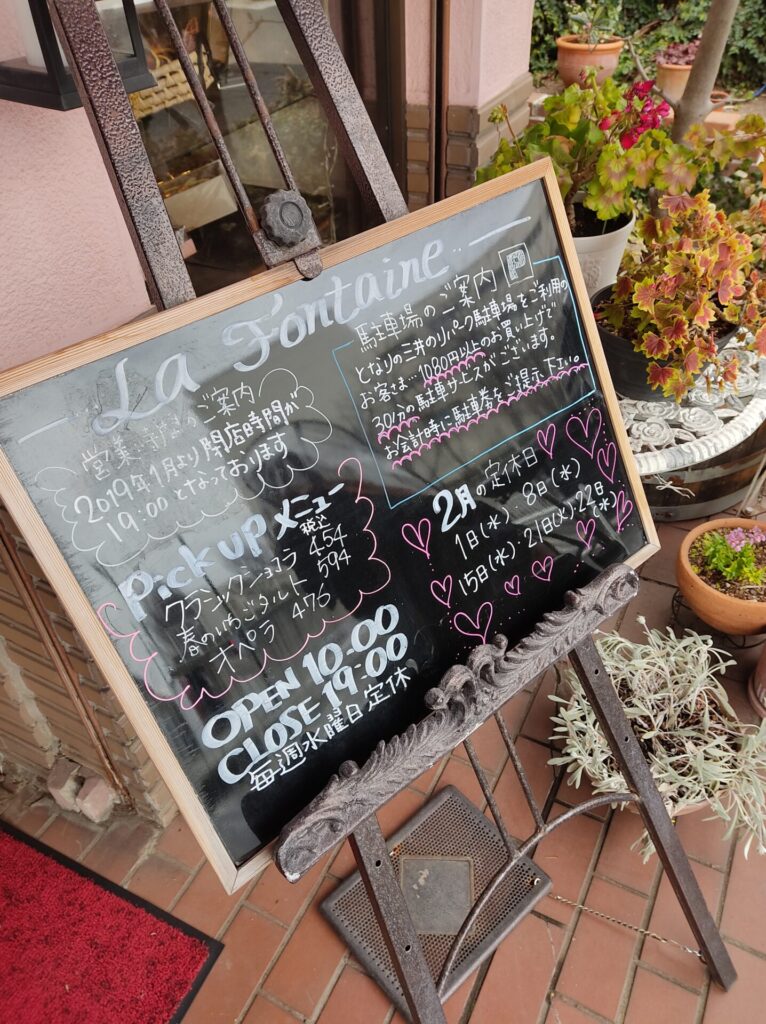 La Fontaine
営業時間のご案内
2019年1月より閉店時間が
19:00となっております
駐車場のご案内 P
となりの三井のリパーク駐車場をご利用の
お客さま…1080円以上のお買い上げで
30分の駐車サービスがございます。
お会計時に駐車券をご提示下さい。
Pick up メニュー
税込
クラシックショコラ 454
春のいちごタルト 594
オペラ 476
2月の定休日
1日(水)・8日(水)
15日(水)・21日(火)・22日(水)
OPEN 10:00
CLOSE 19:00
毎週水曜日定休